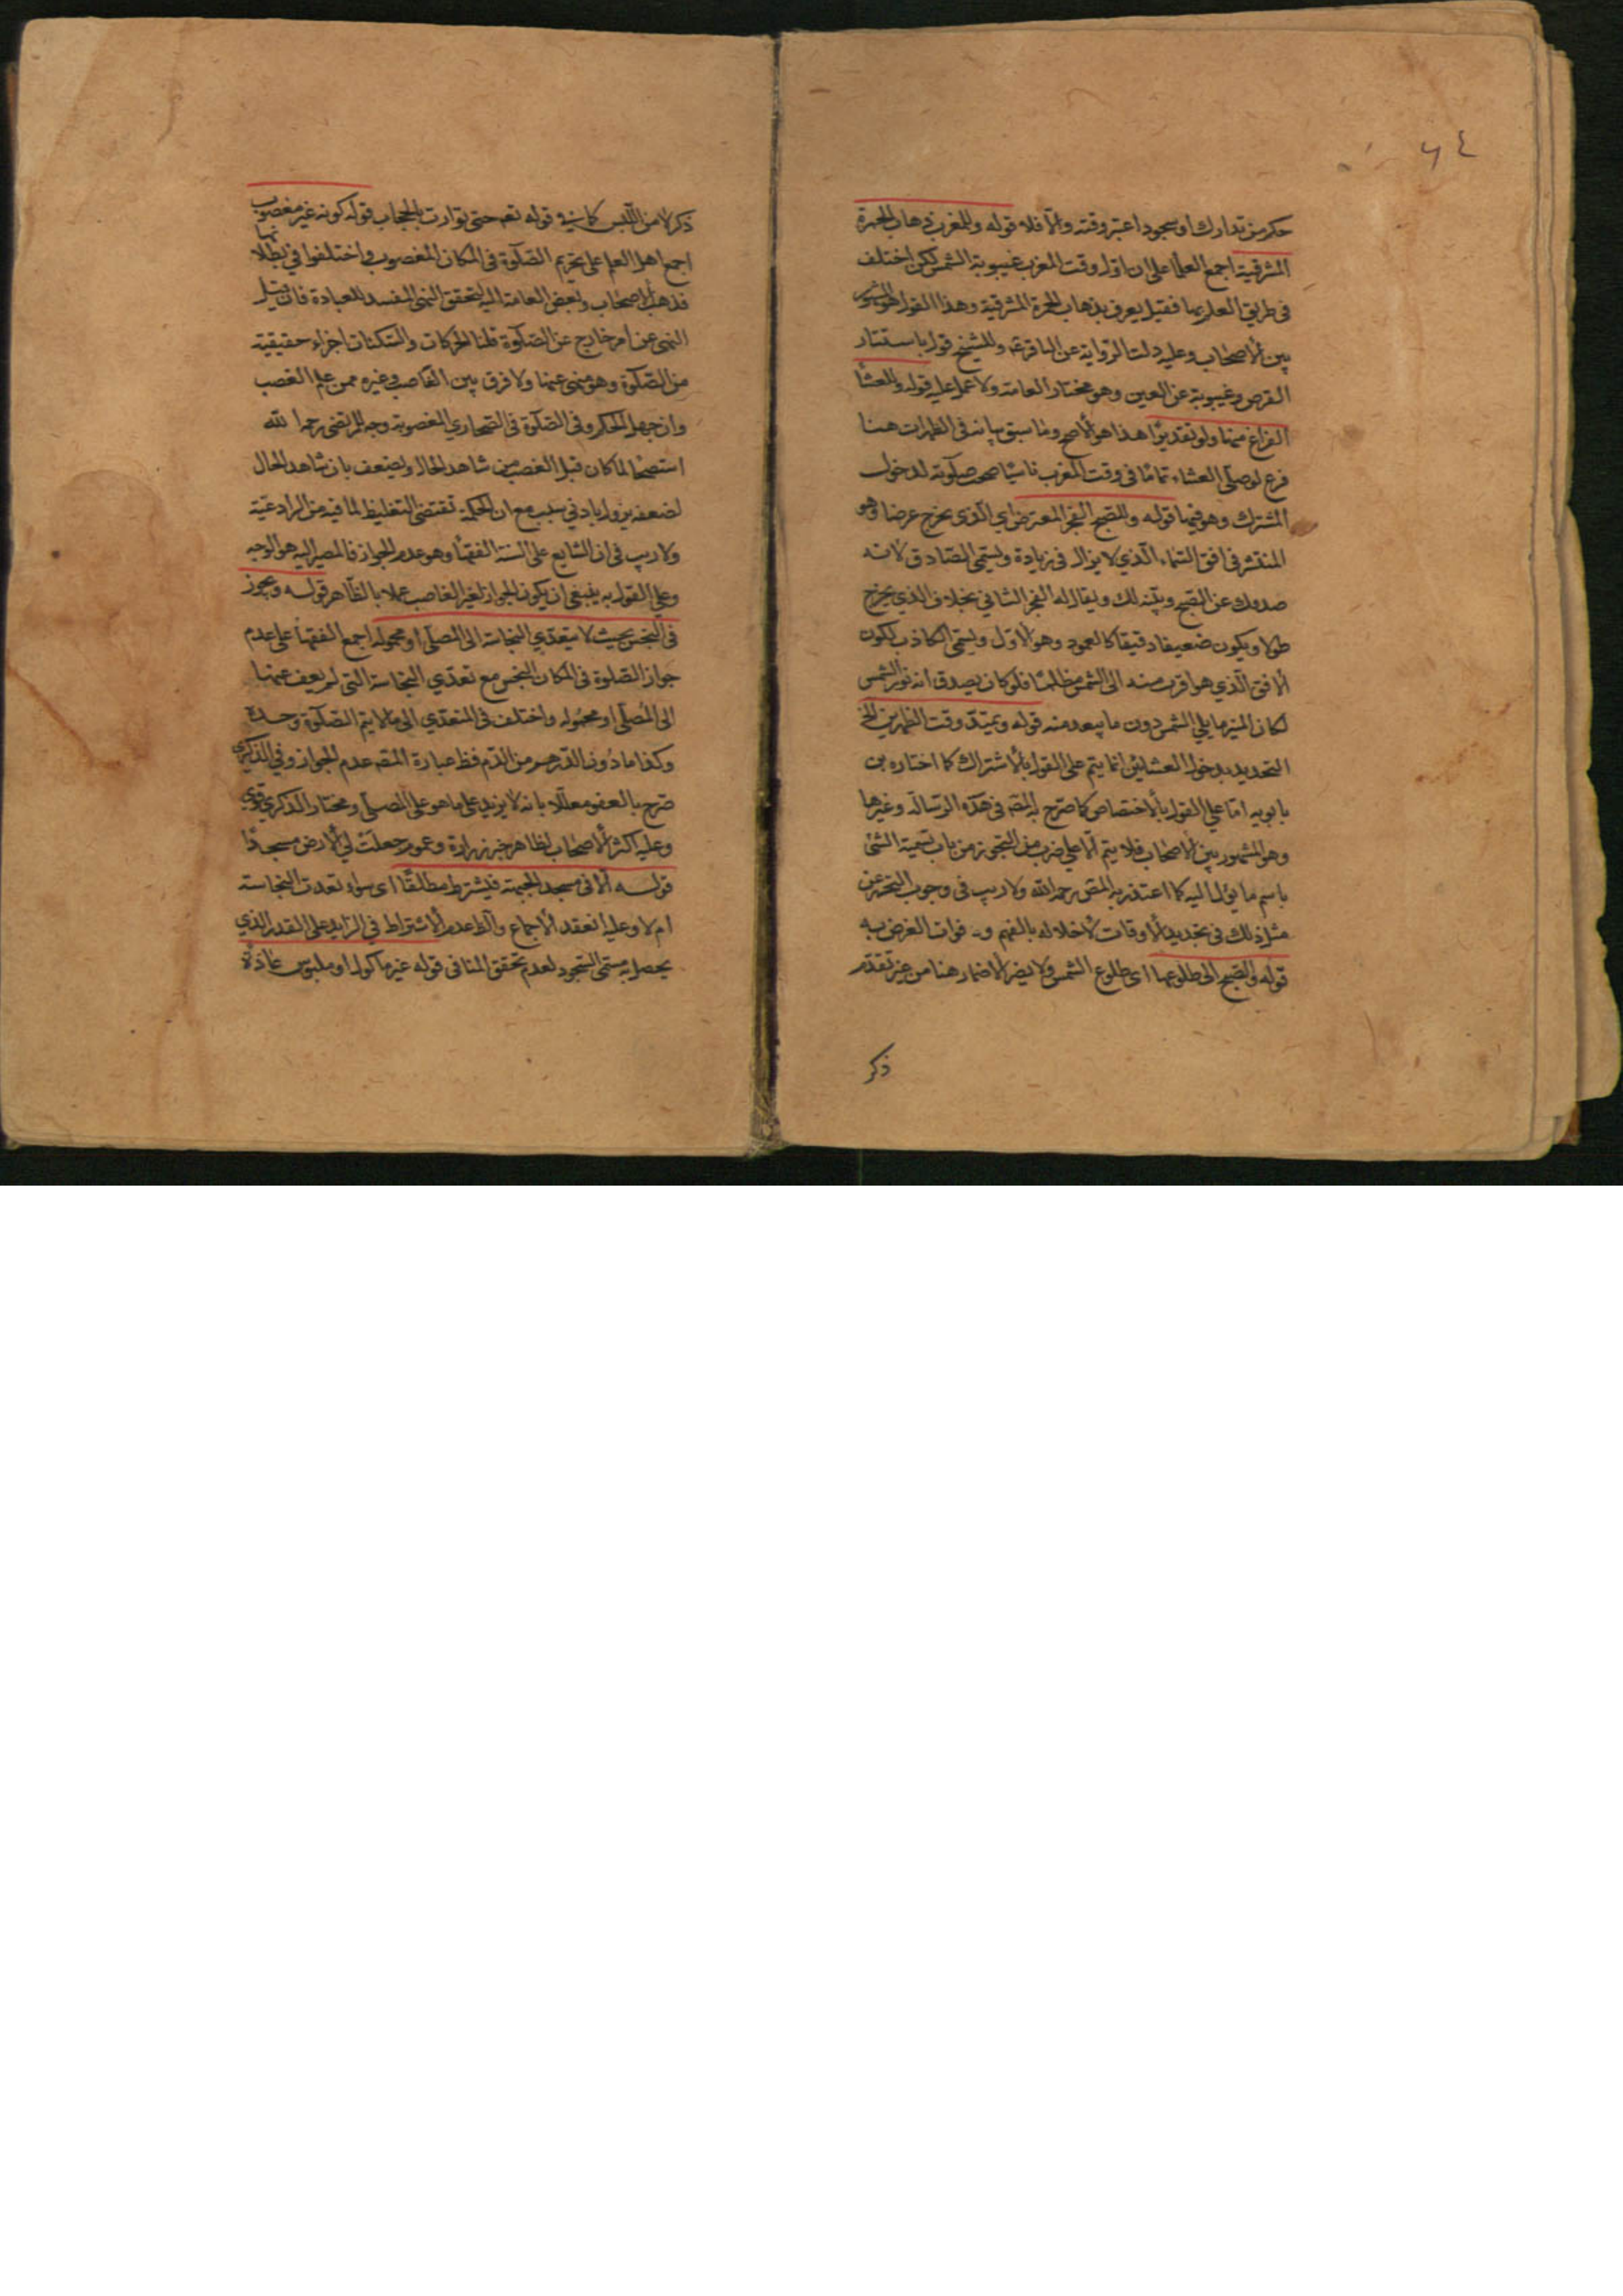 ٦٤
حكم من تدارك او سجود اعتبر وقته والّا فلا قوله وللمغرب ذهاب الحمرة
المشرقية اجمع العلماء على ان اول وقت المغرب غيبوبة الشمس لكن اختلف
فى طريق العلم بها فقيل يعرف بذهاب الحمرة المشرقية وهذا القول هو المشهور
بين الاصحاب وعليه دلت الرواية عن الباقر ع وللشيخ قول باستتار
القرص وغيبوبة عن العين وهو مختار العامة ولا عمل عليه قوله وللعشأ
الفراغ منها ولو تقديرًا هذا هو الاصح وما سبق بيانه فى الظهر ات هنا
فرع لو صلى العشاء تمامًا فى وقت المغرب ناسيًا صحت صلوته لدخول
المشترك وهو فيها قوله وللصبح الفجر المعترض اى الذى يخرج عرضا وهو
المنتشر فى افق السماء الذي لا يزال فى زيادة ويسمى الصادق لانه
صدوك عن الصبح وبيّنه لك ويقال له الفجر الثاني بخلاف الذي يخرج
طولا ويكون ضعيفا دقيقا كالعمود وهو الاول ويسمى الكاذب لكون
الافق الذي هو اقرب منه الى الشمس مظلمًا فلو كان يصدق انه نور الشمس
لكان المنير ما يلي الشمس دون ما يبعد منه قوله ويمتدّ وقت الظهرين الخ
التحديد بدخول العشائين انما يتم على القول بالاشتراك كما اختاره بن
بابويه امّا على القول بالاختصاص كما صرّح به المص فى هذه الرسالة وغيرها
وهو المشهور بين الاصحاب فلا يتم الّا على ضرب من التجوز من باب تسمية الشئ
باسم ما يؤل اليه كما اعتذر به المص رحمه الله ولا ريب فى وجوب التحرز عن
مثل ذلك فى تحديد الاوقات لاخلاله بالفهم و فوات الغرض به
قوله والصبح الى طلوعها اى طلوع الشمس ولا يضر الاضمار هنا من غير تقدّم
ذكر
ذكر لا من اللبس كما فى قوله تعه حتى توارت بالحجاب قوله كونه غير مغصوب
اجمع اهل العلم على تحريم الصلوة فى المكان المغصوب واختلفوا في بطلانها
فذهب الاصحاب وبعض العامة اليه لتحقق النهي المفسد للعبادة فان قيل
النهى عن امر خارج عن الصلوة قلنا الحركات والسكنات اجزاء حقيقية
من الصلوة وهو منهى عنها ولا فرق بين الغاصب وغيره ممن علم الغصب
وان جهل الحكم وفى الصلوة فى الصحاري المغصوبة وجه للمرتضى رحمه الله
استصحابا لما كان قبل الغصب من شاهد الحال ويضعف بان شاهد الحال
لضعفه يزول بادنى سبب مع ان الحكمة تقتضى التغليظ لما فيه من الرادعيّة
ولا ريب فى ان الشايع على السنة الفقهأ وهو عدم الجواز فالمصير اليه هو الوجه
وعلى القول به ينبغي ان يكون الجواز لغير الغاصب عملا بالظاهر قوله ويجوز
فى النجس بحيث لا يتعدّي النجاسة الى المصلى او محموله اجمع الفقهأ على عدم
جواز الصلوة فى المكان النجس مع تعدّي النجاسة التى لم يعف عنها
الى المصلّى او محموله واختلف فى المتعدّي الى ما لا يتم الصلوة وحده
وكذا ما دون الدرهم من الدم فظ عبارة المصه عدم الجواز وفي الذكرى
صرّح بالعفو معللا بانه لا يزيد على ما هو على المصلى ومختار الذكرى قوي
وعليه اكثر الاصحاب لظاهر خبر زرارة وعموم جعلت لي الارض مسجدًا
قوله الّا فى مسجد الجبهة فيشترط مطلقًا اى سواء تعدت النجاسة
ام لا وعليه انعقد الاجماع والظ عدم الاشتراط فى الزايد على القدر الذي
يحصل به مسمى السجود لعدم تحقق المنافى قوله غير ماكول او ملبوس عادة